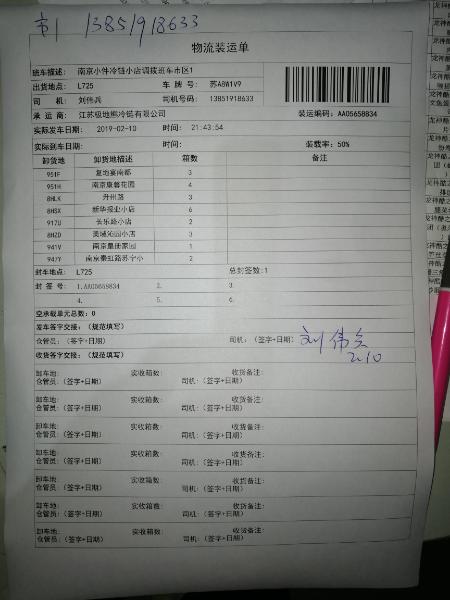 市1 13851918633
物流装运单
班车描述: 南京小件冷链小店调拨班车市区1
出货地点: L725 车 牌 号: 苏A8W1V9
司 机: 刘伟兵 司机号码: 13851918633
承 运 商: 江苏极地熊冷链有限公司 装运编码: AA05658834
实际发车日期: 2019-02-10 时间: 21:43:54
实际到车日期: 时间: 装载率: 50%
卸货地 卸货地描述 箱数 备注
951F 复地宴南都 3
951H 南京康馨花园 4
8HLK 升州路 3
8HSX 新华报业小店 6
917U 长乐路小店 2
8HZD 美域沁园小店 3
941V 南京皇册家园 1
947Y 南京秦虹路苏宁小 2
封车地点: L725 总封签数:1
封 签 号: 1.AA05658834 2. 3.
4. 5. 6.
空承载单元总数: 0
发车签字交接: (规范填写)
仓管员: (签字+日期) 司机: (签字+日期) 刘伟兵
2.10
收货签字交接: (规范填写)
卸车地: 实收箱数: 收货备注:
仓管员: (签字+日期) 司机: (签字+日期)
卸车地: 实收箱数: 收货备注:
仓管员: (签字+日期) 司机: (签字+日期)
卸车地: 实收箱数: 收货备注:
仓管员: (签字+日期) 司机: (签字+日期)
卸车地: 实收箱数: 收货备注:
仓管员: (签字+日期) 司机: (签字+日期)
卸车地: 实收箱数: 收货备注:
仓管员: (签字+日期) 司机: (签字+日期)
卸车地: 实收箱数: 收货备注:
仓管员: (签字+日期) 司机: (签字+日期)
卸车地: 实收箱数: 收货备注:
仓管员: (签字+日期) 司机: (签字+日期)